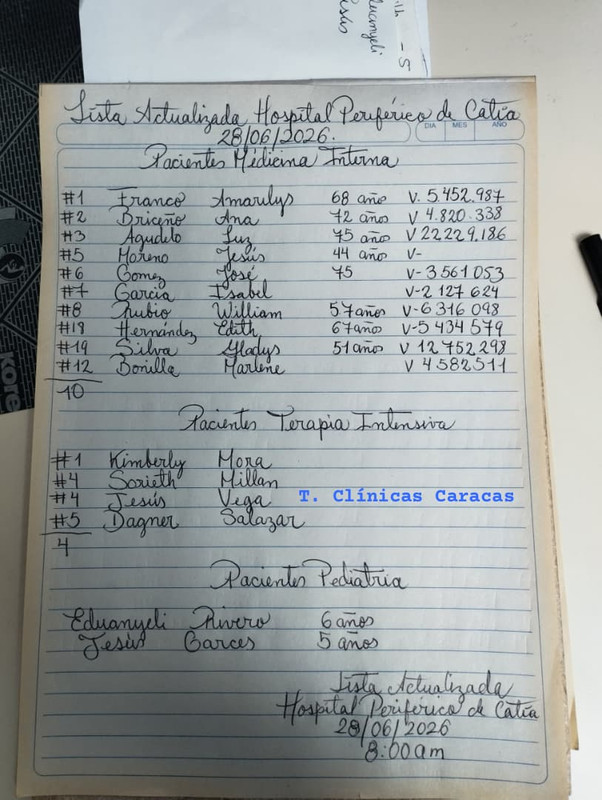 Lista Actualizada Hospital Periférico de Catia
28/06/2026.
DIA MES AÑO
Pacientes Médicina Interna
#1 Franco Amarilys 68 año V. 5.452.987
#2 Briceño Ana 72 año V 4.820.338
#3 Agudelo Luz 75 año V 22229.186
#5 Moreno Jesús 44 año V-
#6 Gomez José 75 V-3561053
#7 Garcia Isabel V-2 127 624
#8 Rubio William 57años V-6 316 098
#19 Hernández Edith 67años V-5 434 579
#19 Silva Gladys 51años V 12 752 298
#12 Bonilla Marlene V 4582511
10
Pacientes Terapia Intensiva
#1 Kimberly Mora
#4 Sorieth Millan
#4 Jesús Vega T. Clínicas Caracas
#5 Dagner Salazar
4
Pacientes Pediatria
Eduanyeli Rivero 6 años
Jesús Garces 5 años
Lista Actualizada
Hospital Periférico de Catia
28/06/2026
8:00am